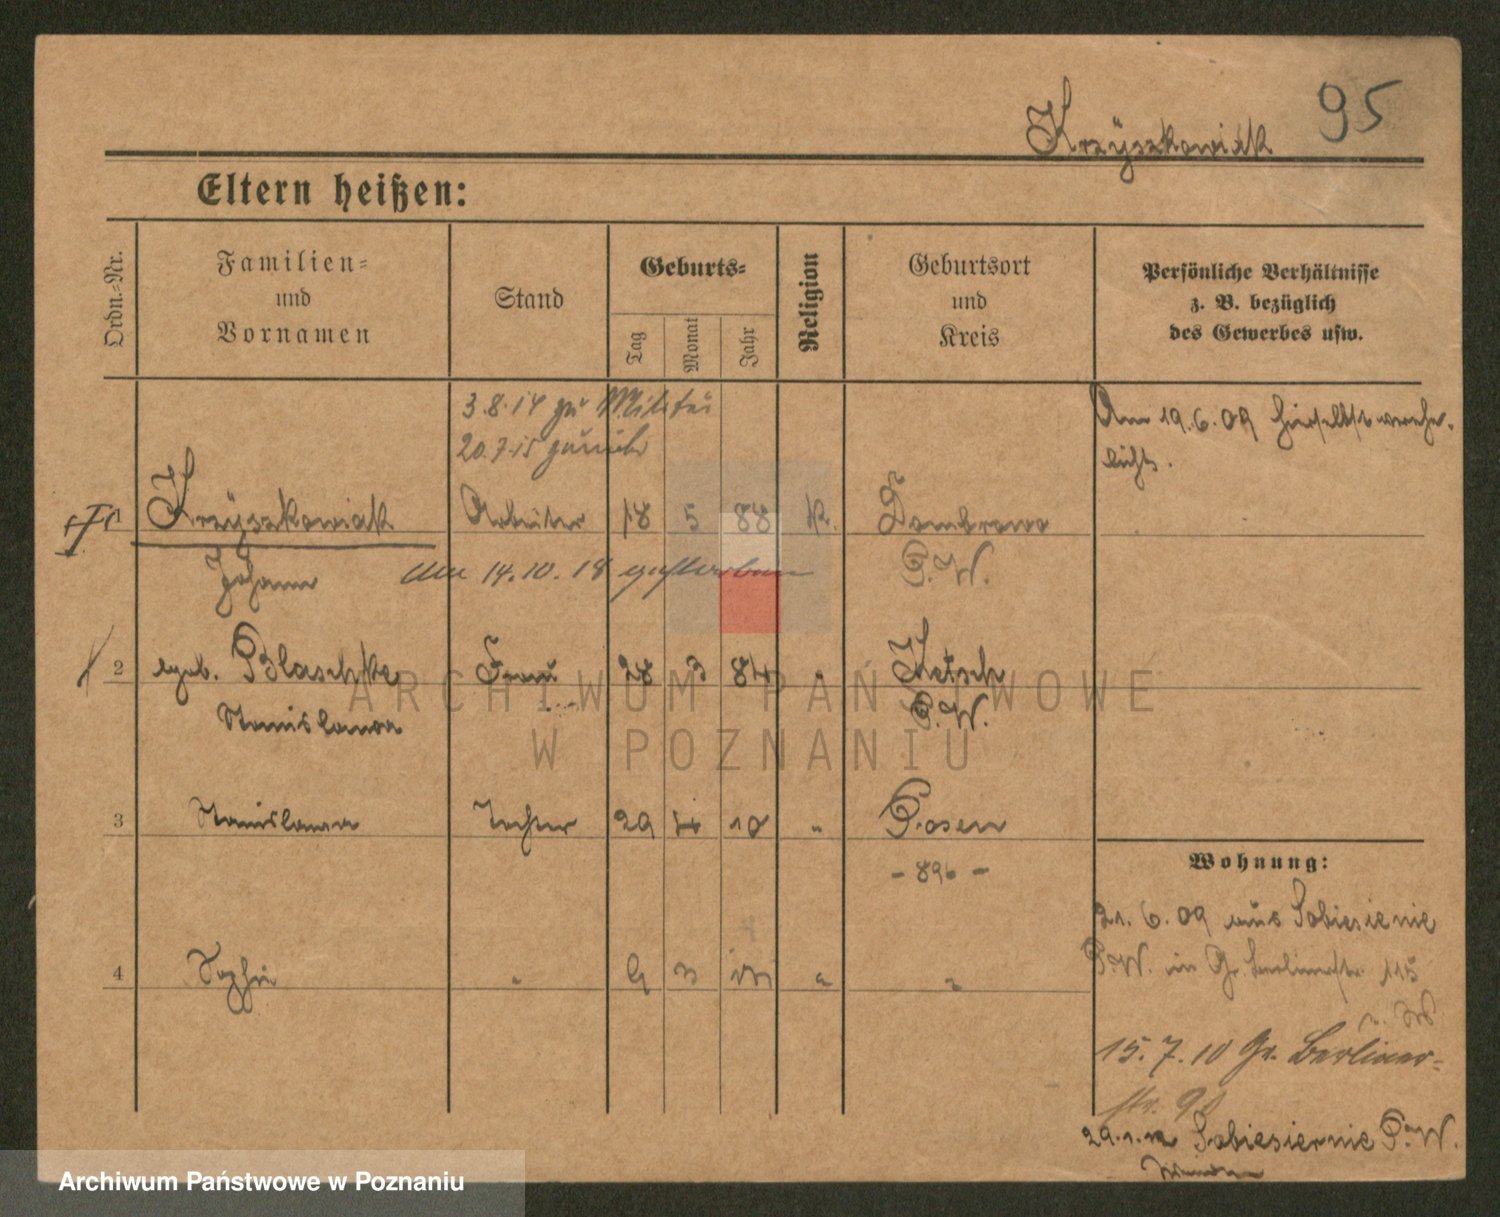 95
Krzÿszkowiak
Eltern heißen:
Ordn.-Nr.
Familien-
und
Vornamen
Stand
Geburts-
Tag
Monat
Jahr
Religion
Geburtsort
und
Kreis
Persönliche Verhältnisse
z. B. bezüglich
des Gewerbes usw.
3.8.14 zu Militär
20.7.15 zurück
Am 19.6.09 hierselbst verehe-
licht.
Krzÿszkowiak Arbeiter 18 5 88 k. Dombrowo
Johann Am 14.10.18 gestorben P.W.
2 geb. Blaschke Frau 28 3 84 " Ketsch
Stanislawa P.W.
3 Stanislawa Tochter 29 4 10 " Posen
- 896 -
Wohnung:
21.6.09 aus Sobiesiernie
P.W. in Gr. Berlinerstr. 115
4 Sophie " 9 3 "
15.7.10 Gr. Berliner-
str. 90
29.1.12 Sobiesiernie P.W.
ARCHIWUM PAŃSTWOWE
W POZNANIU
Archiwum Państwowe w Poznaniu